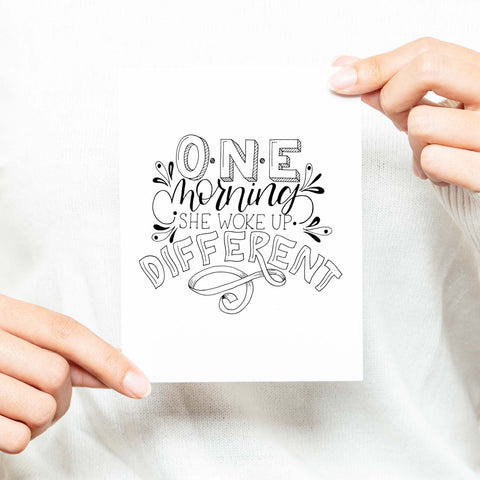 O.N.E
morning
SHE WOKE UP
DIFFERENT